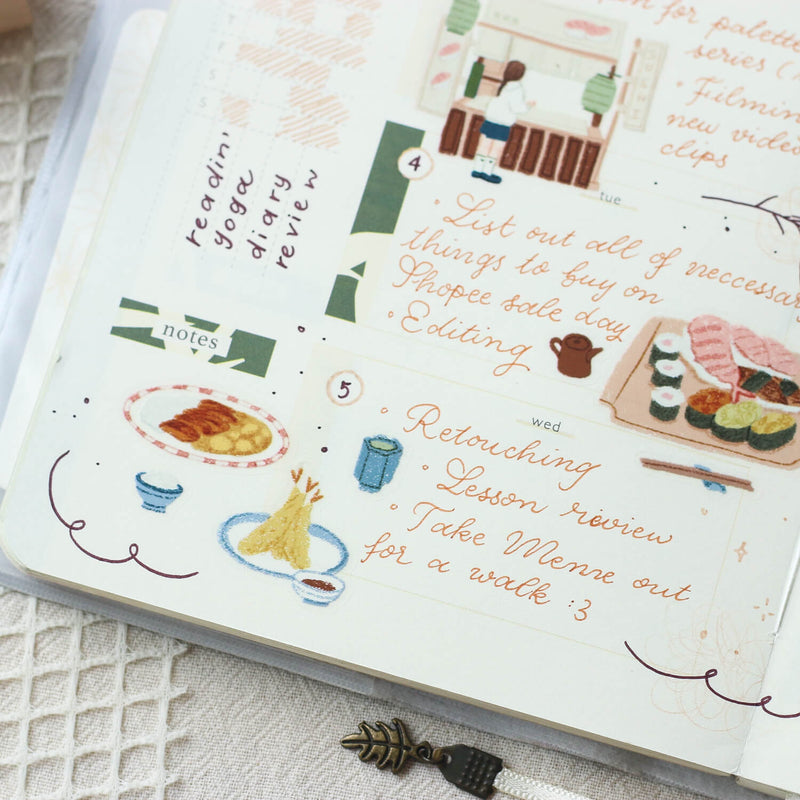 T
F
S
S
readin'
yoga
diary
review
notes
for palette
series (
• Filmin
new video
clips
tue
4
• List out all of neccessar
things to buy on
Shopee sale day
• Editing
wed
5
• Retouching
• Lesson review
• Take Meme out
for a walk :3